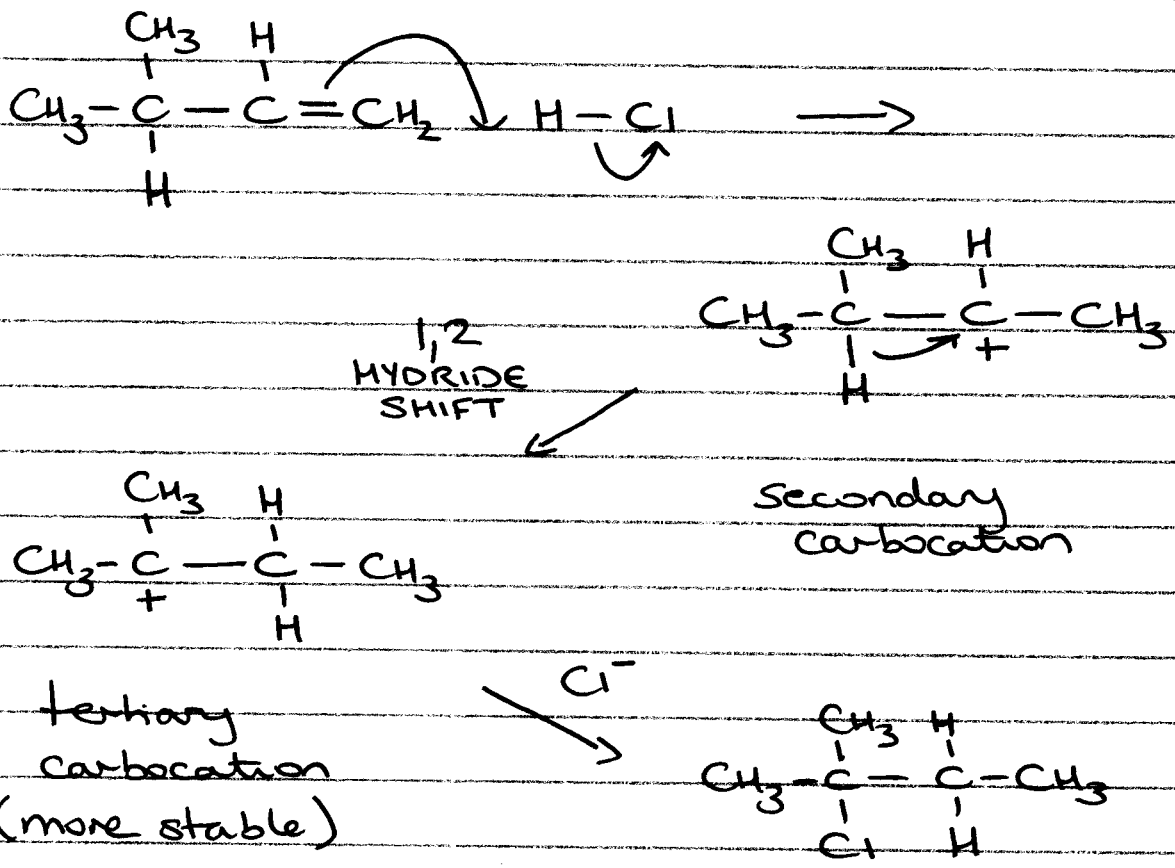 CH₃ H
CH₃ – C – C = CH₂ H – Cl ⟶
H
CH₃ H
CH₃ – C – C – CH₃
H +
1,2
HYDRIDE
SHIFT
secondary
carbocation
CH₃ H
CH₃ – C – C – CH₃
+ H
tertiary
carbocation
(more stable)
Cl⁻
CH₃ H
CH₃ – C – C – CH₃
Cl H